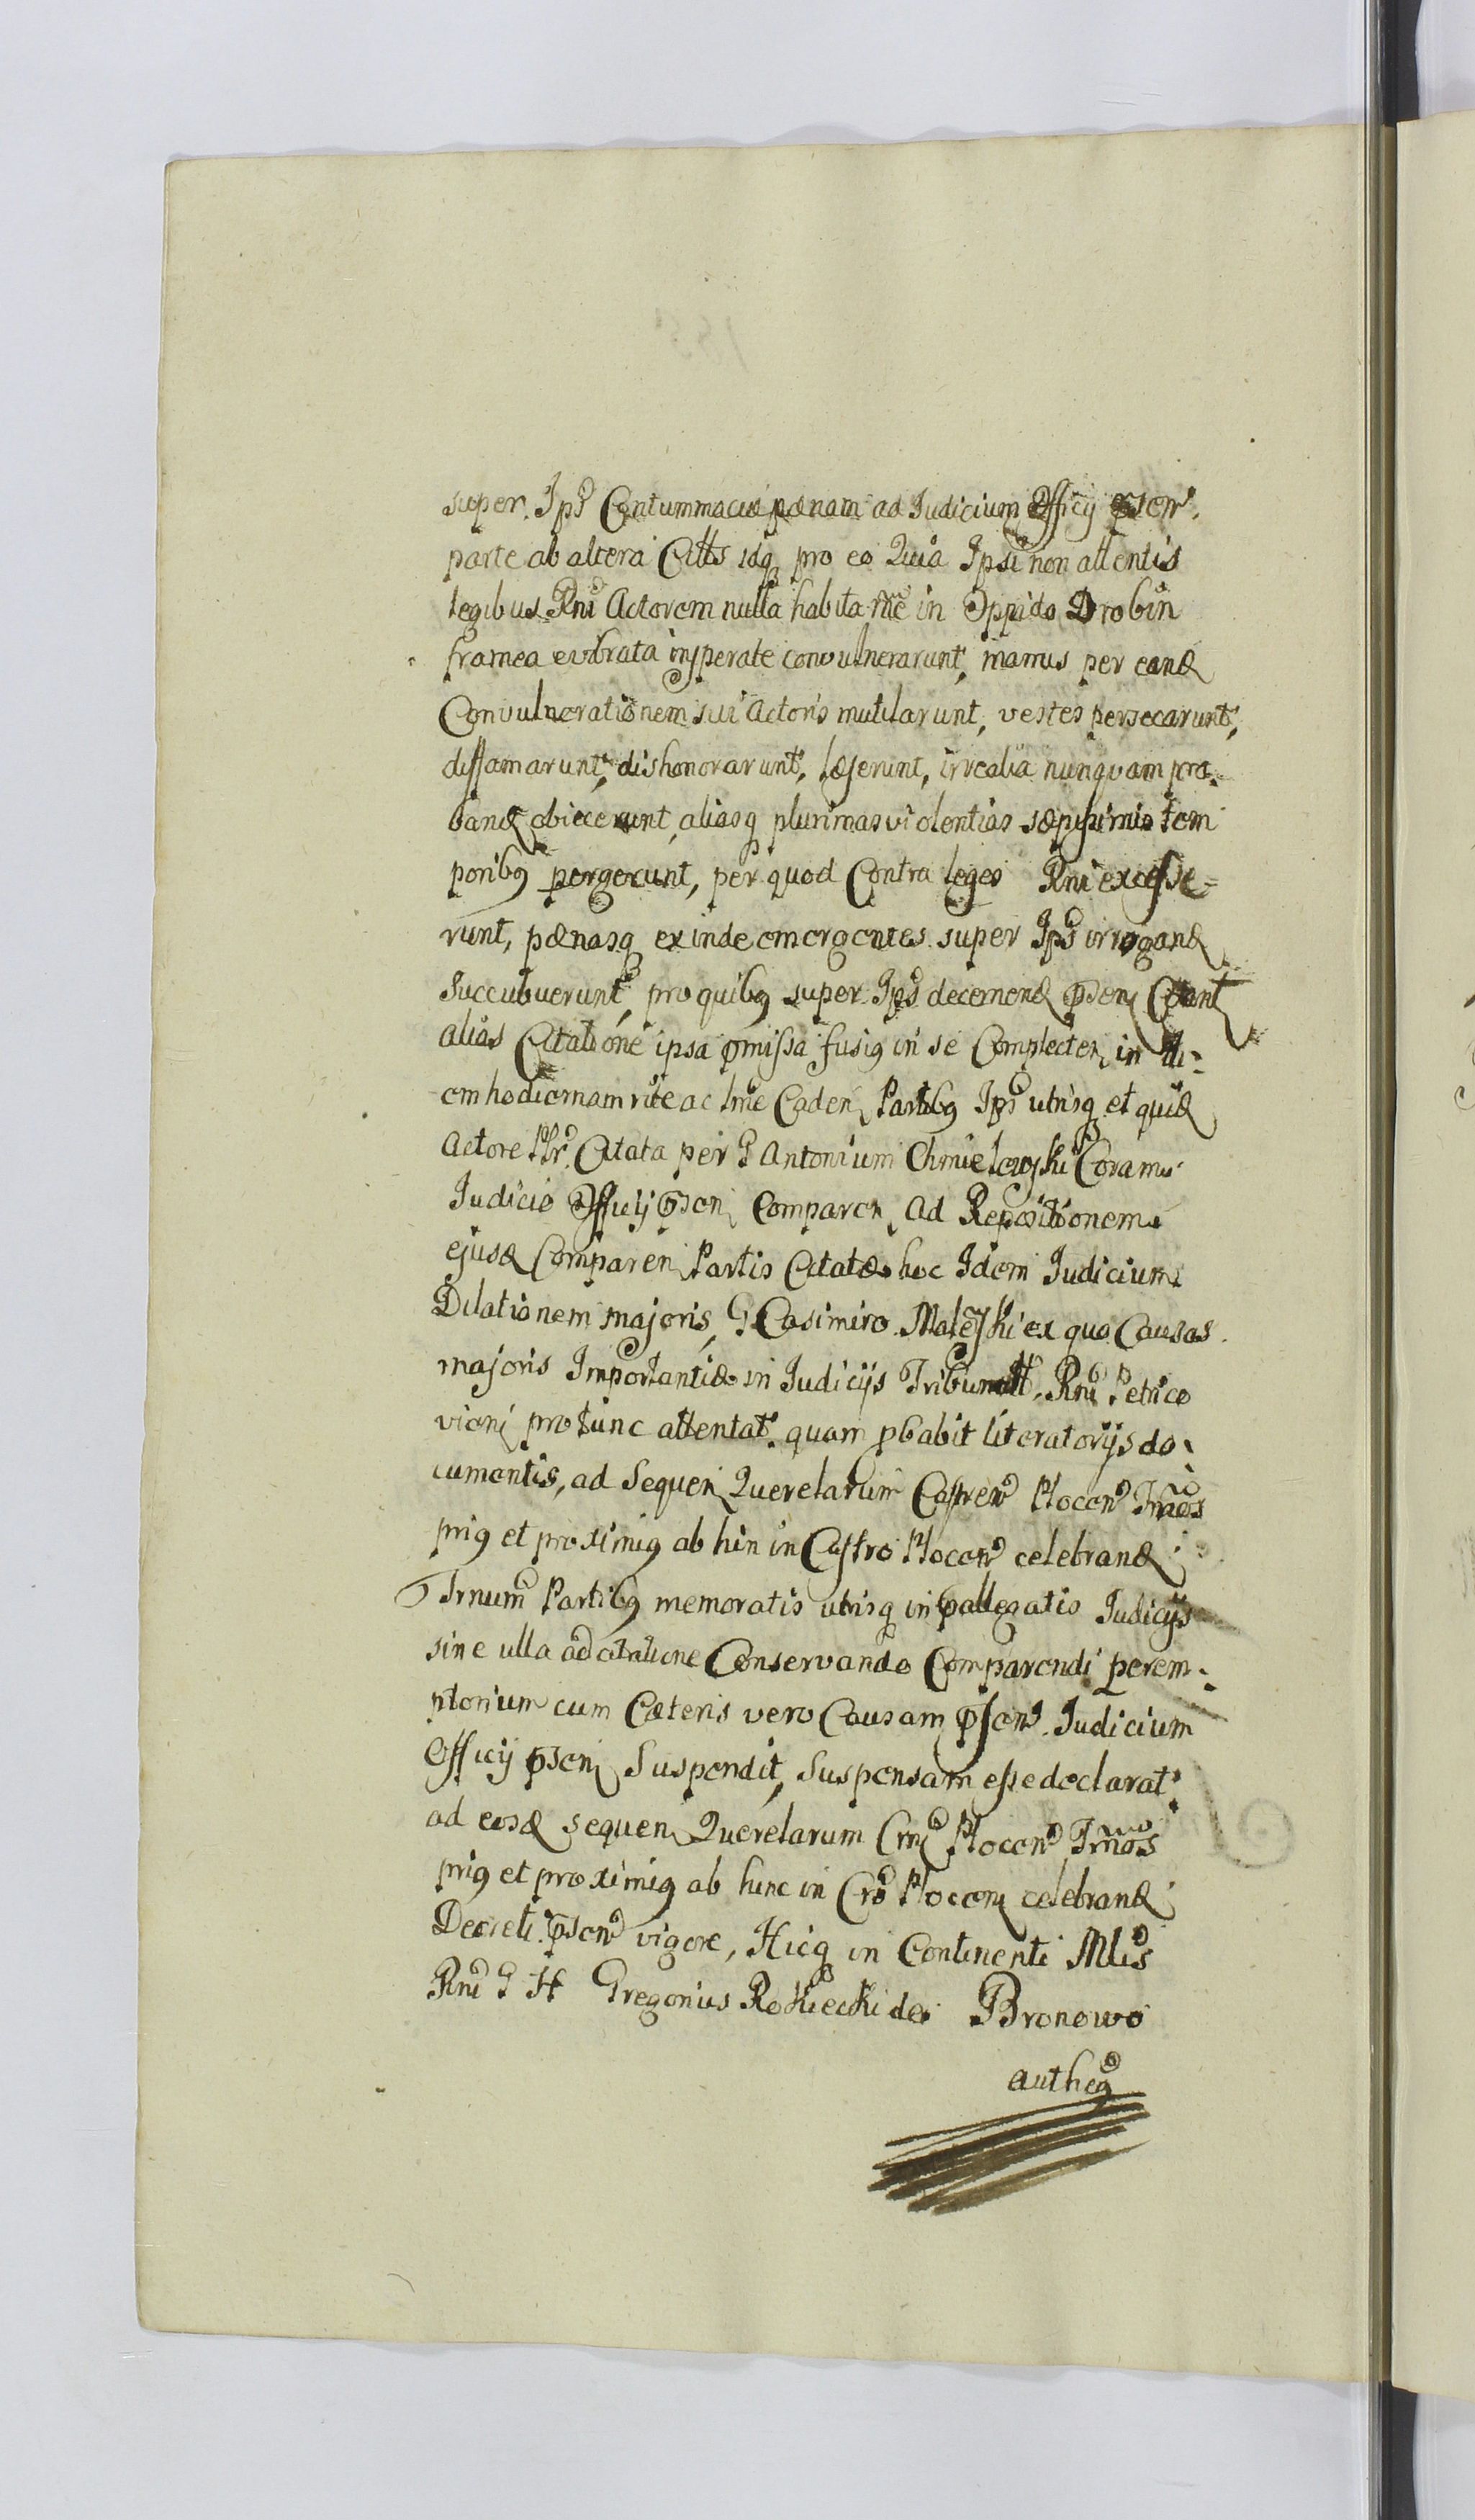 super Ips Contummaciæ pænam ad Judicium Officij psen
parte ab altera Citts idq pro eo Quia Ipsi non attentis
legibus Rni Actorem nulla habita rne in Oppido Drobin
framea evibrata insperate convulnerarunt, manus per eand
Convulnerationem sui Actoris mutilarunt, vestes persecarunt,
diffamarunt, dishonorarunt, læserunt, irrealia nunqvam pro
band obiecerunt, aliasq plurimas violentias sæpissimis tem
poribq pergerunt, per quod Contra leges Rni excesse=
runt, pænasq exinde emergentes super Ips irrogand
Succubuerunt, pro quibq super Ips decernend psen Citant
alias Citatione ipsa pmissa fusiq in se Complecten in di=
em hodiernam rite ac lme Caden Partibq Ips utrisq et quid
Actore Ppr Citata per G Antonium Chmielewski Coram
Judicio Officij psen Comparen ad Repositionem
ejusd Comparen Partis Citatæ hoc Idem Judicium
Dilationem majoris, G Casimiro Maleski ex quo Causas
majoris Importantiæ in Judicijs Tribunall Rni Petrico
vien protunc attentat quam pbabit literatorijs do
cumentis, ad Sequen Querelarum Castren Plocen Trnos
priq et proximiq ab hin in Castro Plocen celebrand
Trnum Partibq memoratis utrisq in pallegatis Judicijs
sine ulla adcitatione Conservando Comparendi perem=
ptorium cum Cæteris vero Causam psen Judicium
Officij psen Suspendit, Suspensam esse declarat
ad eosd sequen Querelarum Crn Plocen Trnos
priq et proximiq ab hinc in Cro Plocen celebrand
Decreti psen vigore, Hicq in Continenti Mlis
Rni G H Gregorius Rokicki de Bronowo
autheq